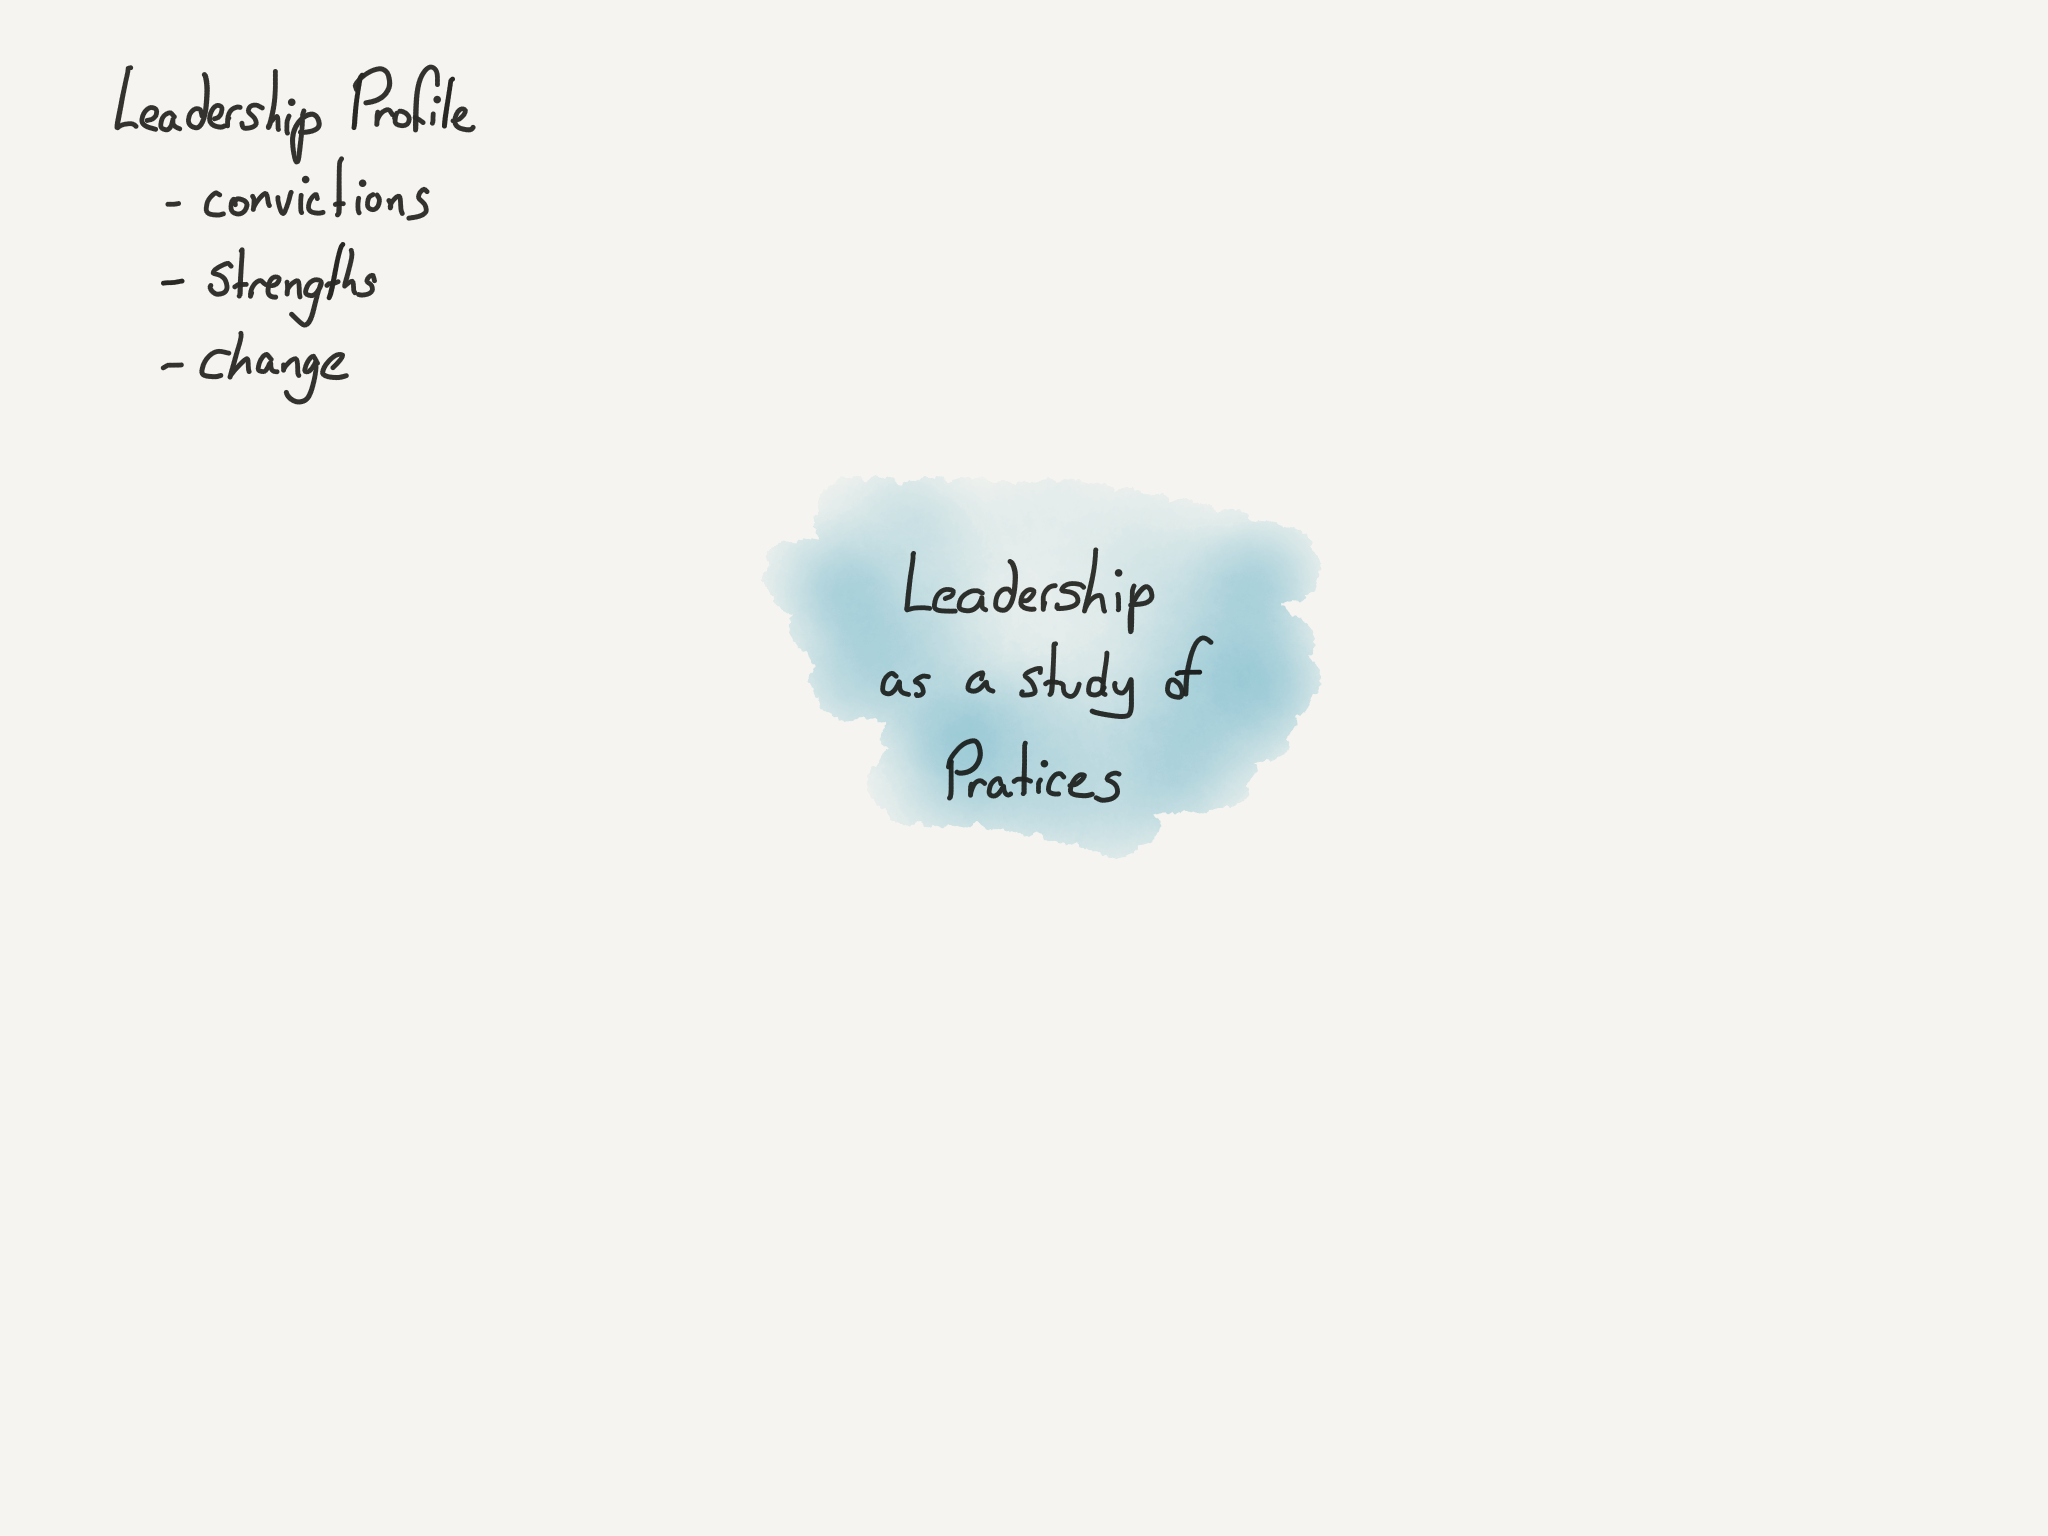 Leadership Profile
- convictions
- strengths
- change
Leadership
as a study of
Pratices